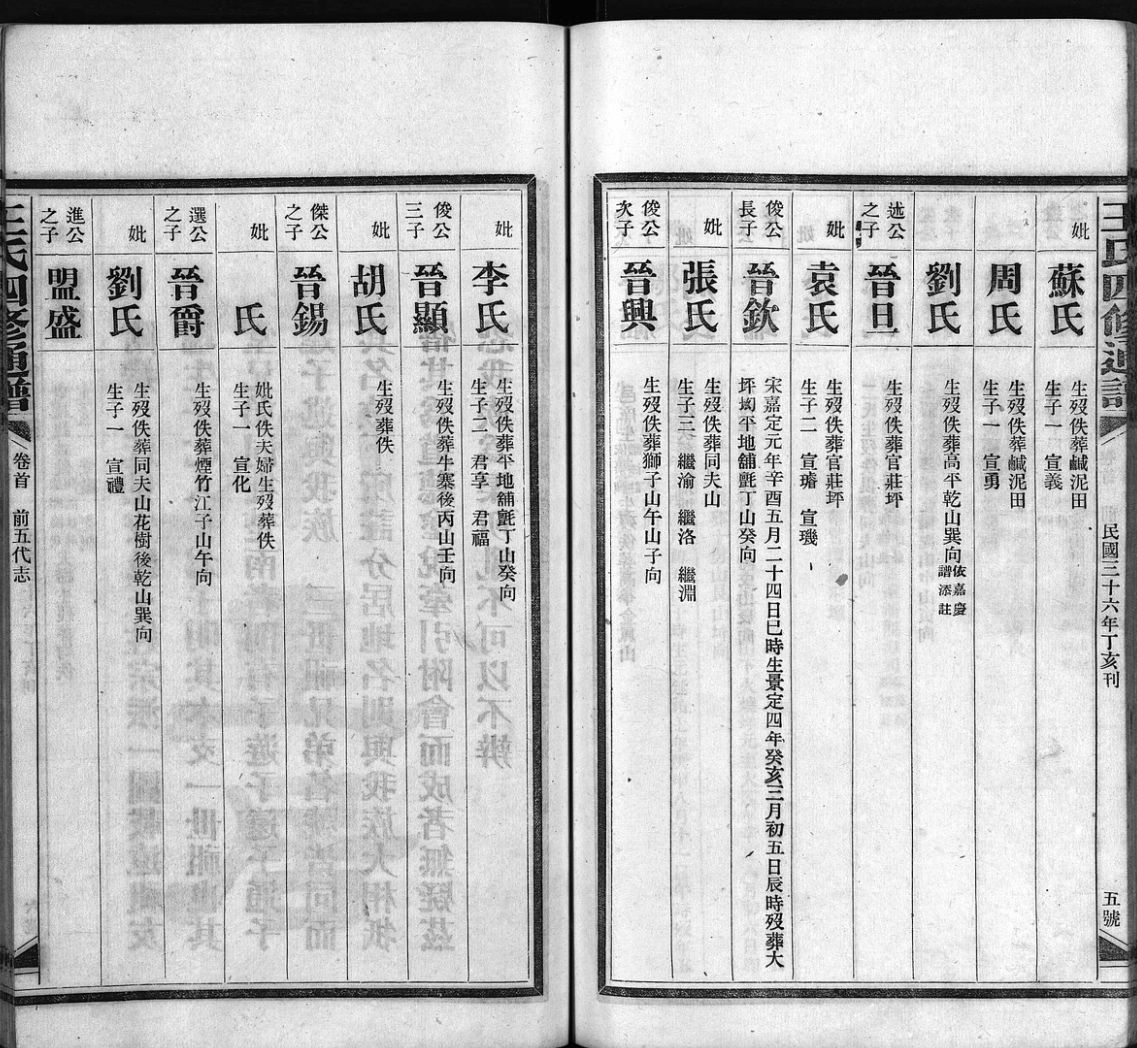 王氏四修通譜
民國三十六年丁亥刊
五號
妣
蘇氏
生歿佚葬鹹泥田
生子一 宣義
周氏
生歿佚葬鹹泥田
生子一 宣勇
劉氏
生歿佚葬高平乾山巽向
依嘉慶
譜添註
述公
之子
晉旦
生歿佚葬官莊坪
妣
袁氏
生歿佚葬官莊坪
生子二 宣璿 宣璣
俊公
長子
晉欽
宋嘉定元年辛酉五月二十四日巳時生景定四年癸亥三月初五日辰時歿葬大
坪坳平地舖氈丁山癸向
妣
張氏
生歿佚葬同夫山
生子三 繼渝 繼洛 繼淵
俊公
次子
晉興
生歿佚葬獅子山午山子向
妣
李氏
生歿佚葬平地舖氈丁山癸向
生子二 君享 君福
俊公
三子
晉顯
生歿佚葬牛寨後丙山壬向
妣
胡氏
生歿葬佚
傑公
之子
晉錫
妣
氏
妣氏佚夫婦生歿葬佚
生子一 宣化
選公
之子
晉爵
生歿佚葬煙竹江子山午向
妣
劉氏
生歿佚葬同夫山花樹後乾山巽向
生子一 宣禮
進公
之子
盟盛
王氏四修通譜
卷首 前五代志